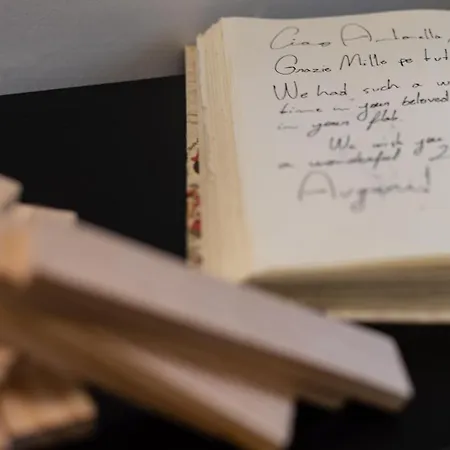 Ciao Antonella
Grazie Mille pe tut
We had such a w
time in your beloved
in your flat.
We wish you
a wonderful 2
Auguroni!